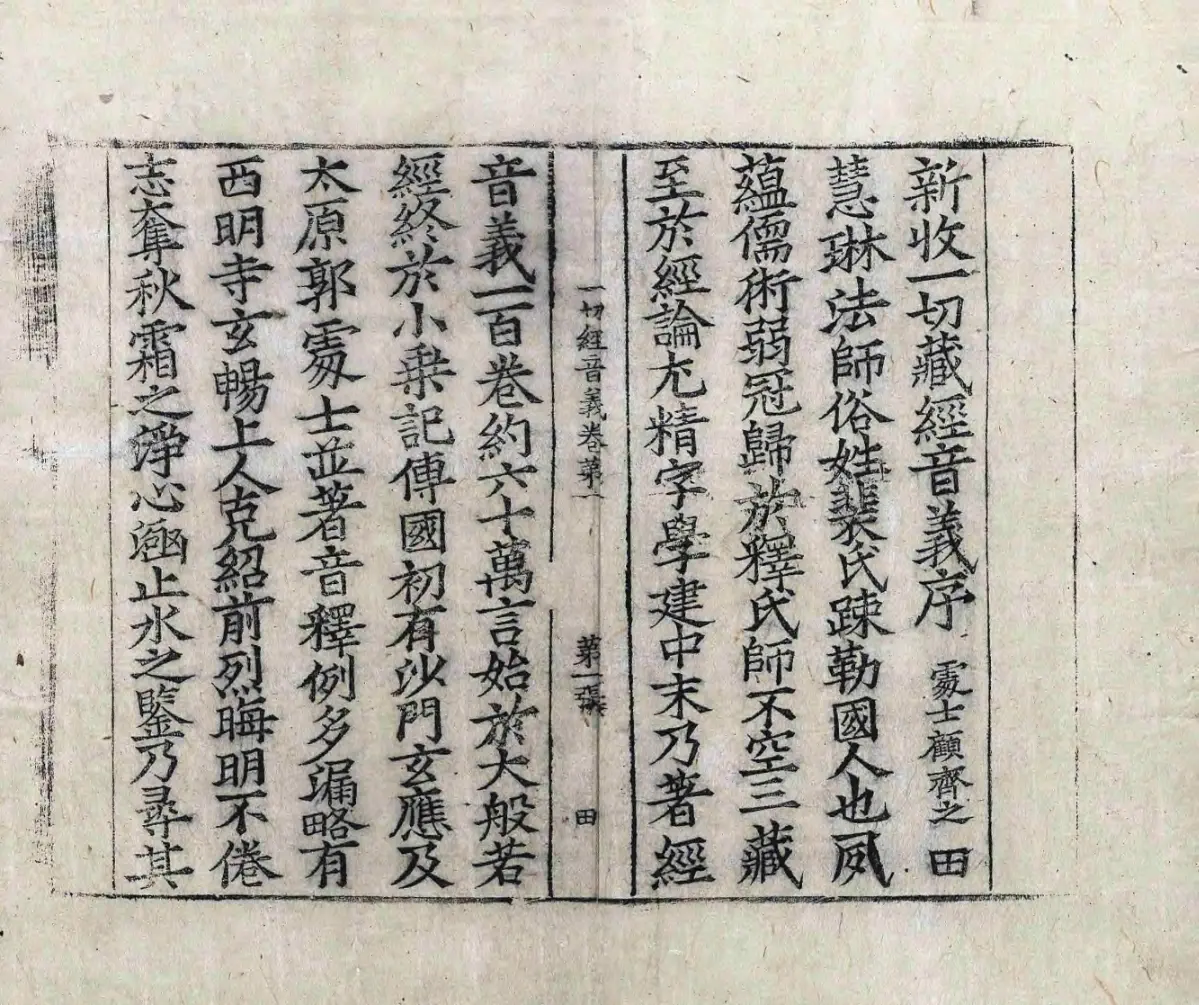 新收一切藏經音義序 處士顧齊之 田
慧琳法師俗姓裴氏踈勒國人也夙
蘊儒術弱冠歸於釋氏師不空三藏
至於經論尤精字學建中末乃著經
一切經音義卷第一 第一張 田
音義一百卷約六十萬言始於大般若
經終於小乘記傳國初有沙門玄應及
太原郭處士並著音釋例多漏略有
西明寺玄暢上人克紹前烈晦明不倦
志奪秋霜之淨心涵止水之鑒乃尋其